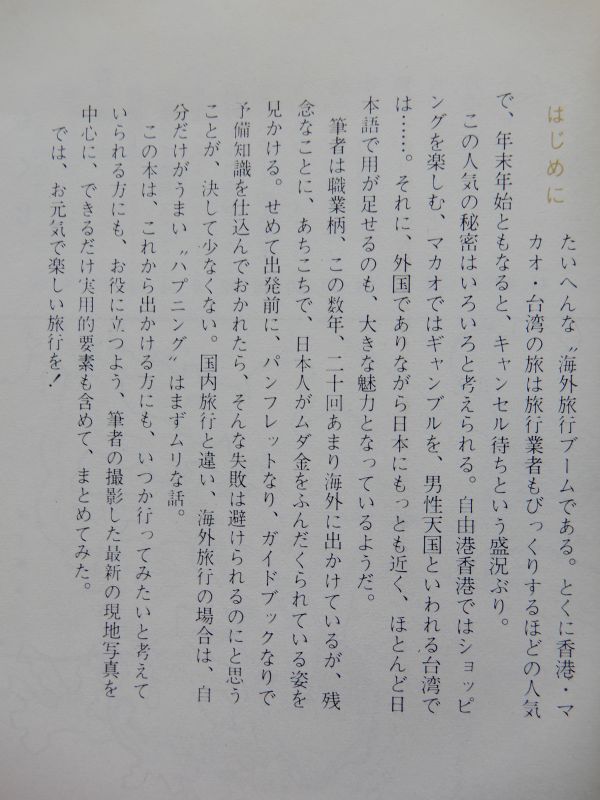 はじめに
たいへんな〝海外旅行ブームである。とくに香港・マ
カオ・台湾の旅は旅行業者もびっくりするほどの人気
で、年末年始ともなると、キャンセル待ちという盛況ぶり。
この人気の秘密はいろいろと考えられる。自由港香港ではショッピ
ングを楽しむ、マカオではギャンブルを、男性天国といわれる台湾で
は……。それに、外国でありながら日本にもっとも近く、ほとんど日
本語で用が足せるのも、大きな魅力となっているようだ。
筆者は職業柄、この数年、二十回あまり海外に出かけているが、残
念なことに、あちこちで、日本人がムダ金をふんだくられている姿を
見かける。せめて出発前に、パンフレットなり、ガイドブックなりで
予備知識を仕込んでおかれたら、そんな失敗は避けられるのにと思う
ことが、決して少なくない。国内旅行と違い、海外旅行の場合は、自
分だけがうまい〝ハプニング〟はまずムリな話。
この本は、これから出かける方にも、いつか行ってみたいと考えて
いられる方にも、お役に立つよう、筆者の撮影した最新の現地写真を
中心に、できるだけ実用的要素も含めて、まとめてみた。
では、お元気で楽しい旅行を！